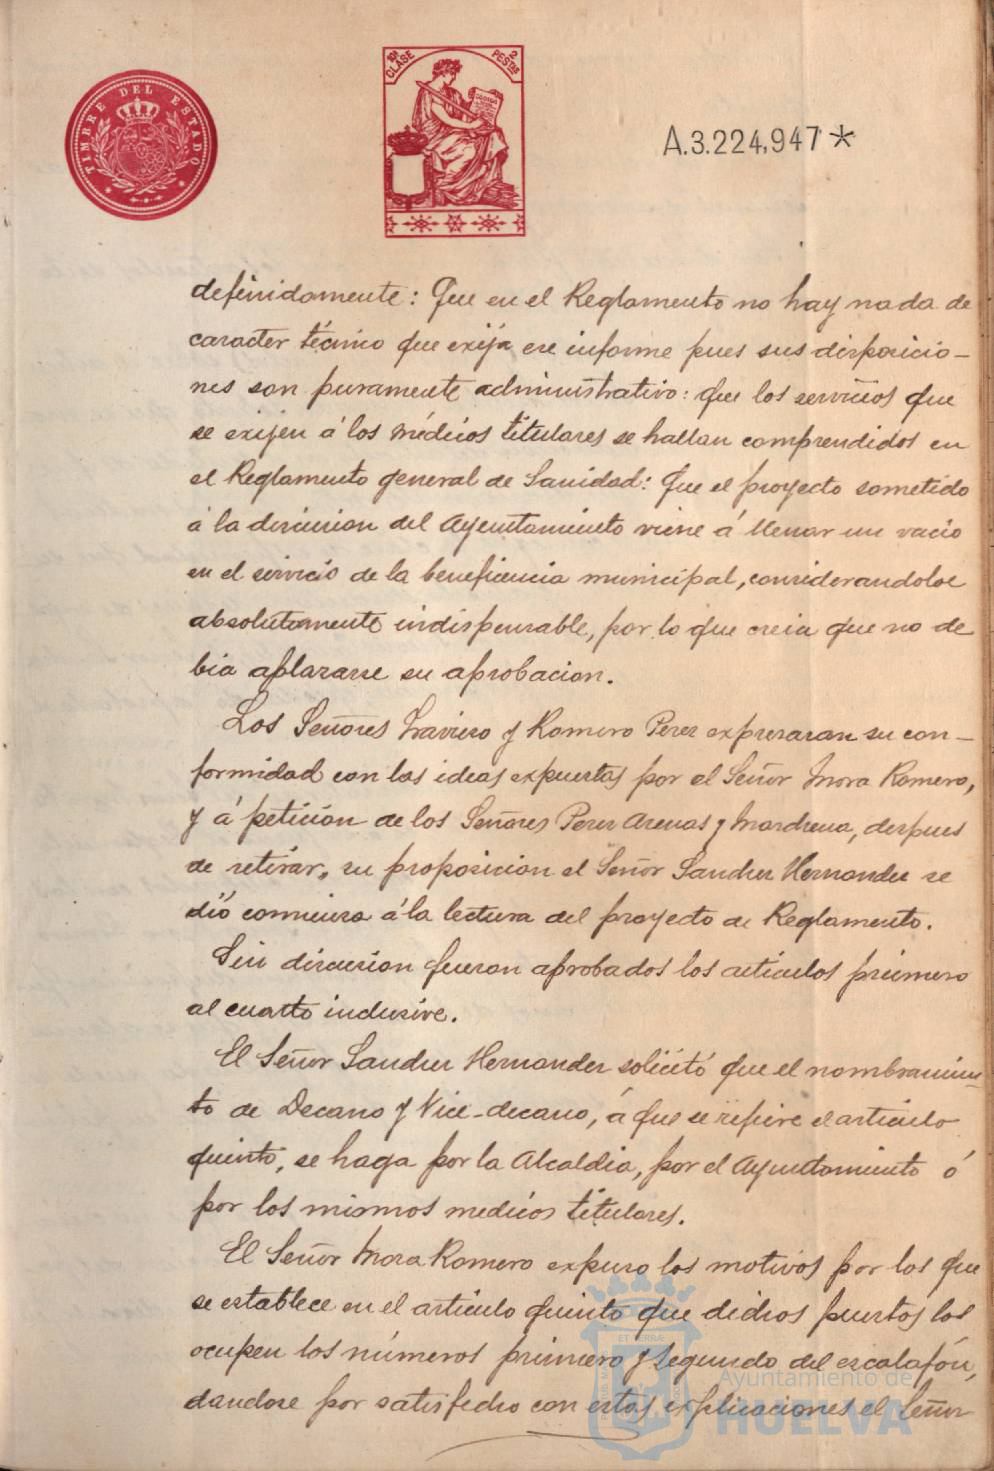 TIMBRE DEL ESTADO
10ª CLASE
2 PESTAS
A.3.224,947*
definidamente: Que en el Reglamento no hay nada de
caracter técnico que exija ese informe pues sus disposicio-
nes son puramente administrativo: que los servicios que
se exijen á los médicos titulares se hallan comprendidos en
el Reglamento general de Sanidad: Que el proyecto sometido
á la discusion del Ayuntamiento viene á llenar un vacio
en el servicio de la beneficencia municipal, considerandolo
absolutamente indispensable, por lo que creia que no de
bia aplazarse su aprobacion.
Los Señores Travieso y Romero Perez expresaran su con-
formidad con las ideas expuestas por el Señor Mora Romero,
y á petición de los Señores Perez Arenas y Mordrena, despues
de retirar, su proposicion el Señor Sanchez Hernandez se
dió comienzo á la lectura del proyecto de Reglamento.
Sin discusion fueron aprobados los articulos primero
al cuarto inclusive.
El Señor Sanchez Hernandez solicitó que el nombramien-
to de Decano y Vice-decano, á que se refiere el articulo
quinto, se haga por la Alcaldia, por el Ayuntamiento ó
por los mismos medicos titulares.
El Señor Mora Romero expuso los motivos por los que
se establece en el articulo quinto que dichos puestos los
ocupen los números primero y segundo del escalafón,
dandose por satisfecho con estas explicaciones el Señor
Ayuntamiento de
HUELVA